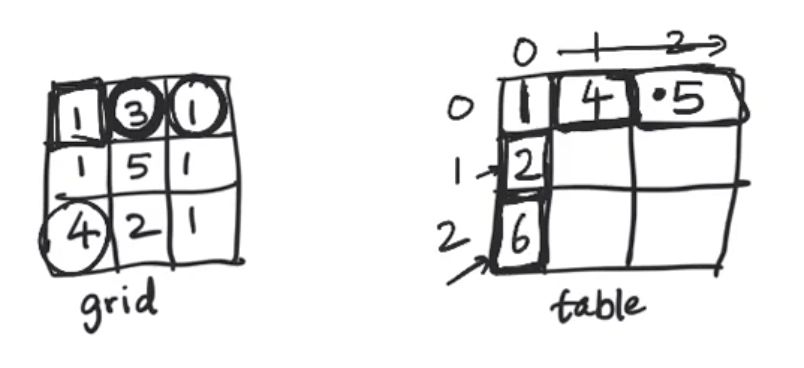 1 3 1
1 5 1
4 2 1
grid
0 1 2
0 1 4 •5
1 2
2 6
table